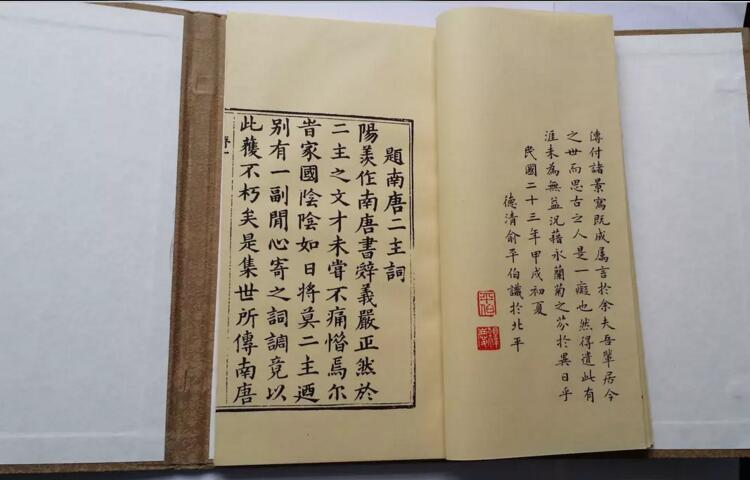 傳付諸景寫既成属言於余夫吾輩居今
之世而思古之人是一癡也然得遣此有
涯未為無益況藉永蘭菊之芬於異日乎
民國二十三年甲戌初夏
德清俞平伯識於北平
平伯
題南唐二主詞
陽羨作南唐書辤義嚴正然於
二主之文才未嘗不痛惜焉尔
昔家國陰陰如日將莫二主迺
别有一副閒心寄之詞調竟以
此獲不朽矣是集世所傳南唐